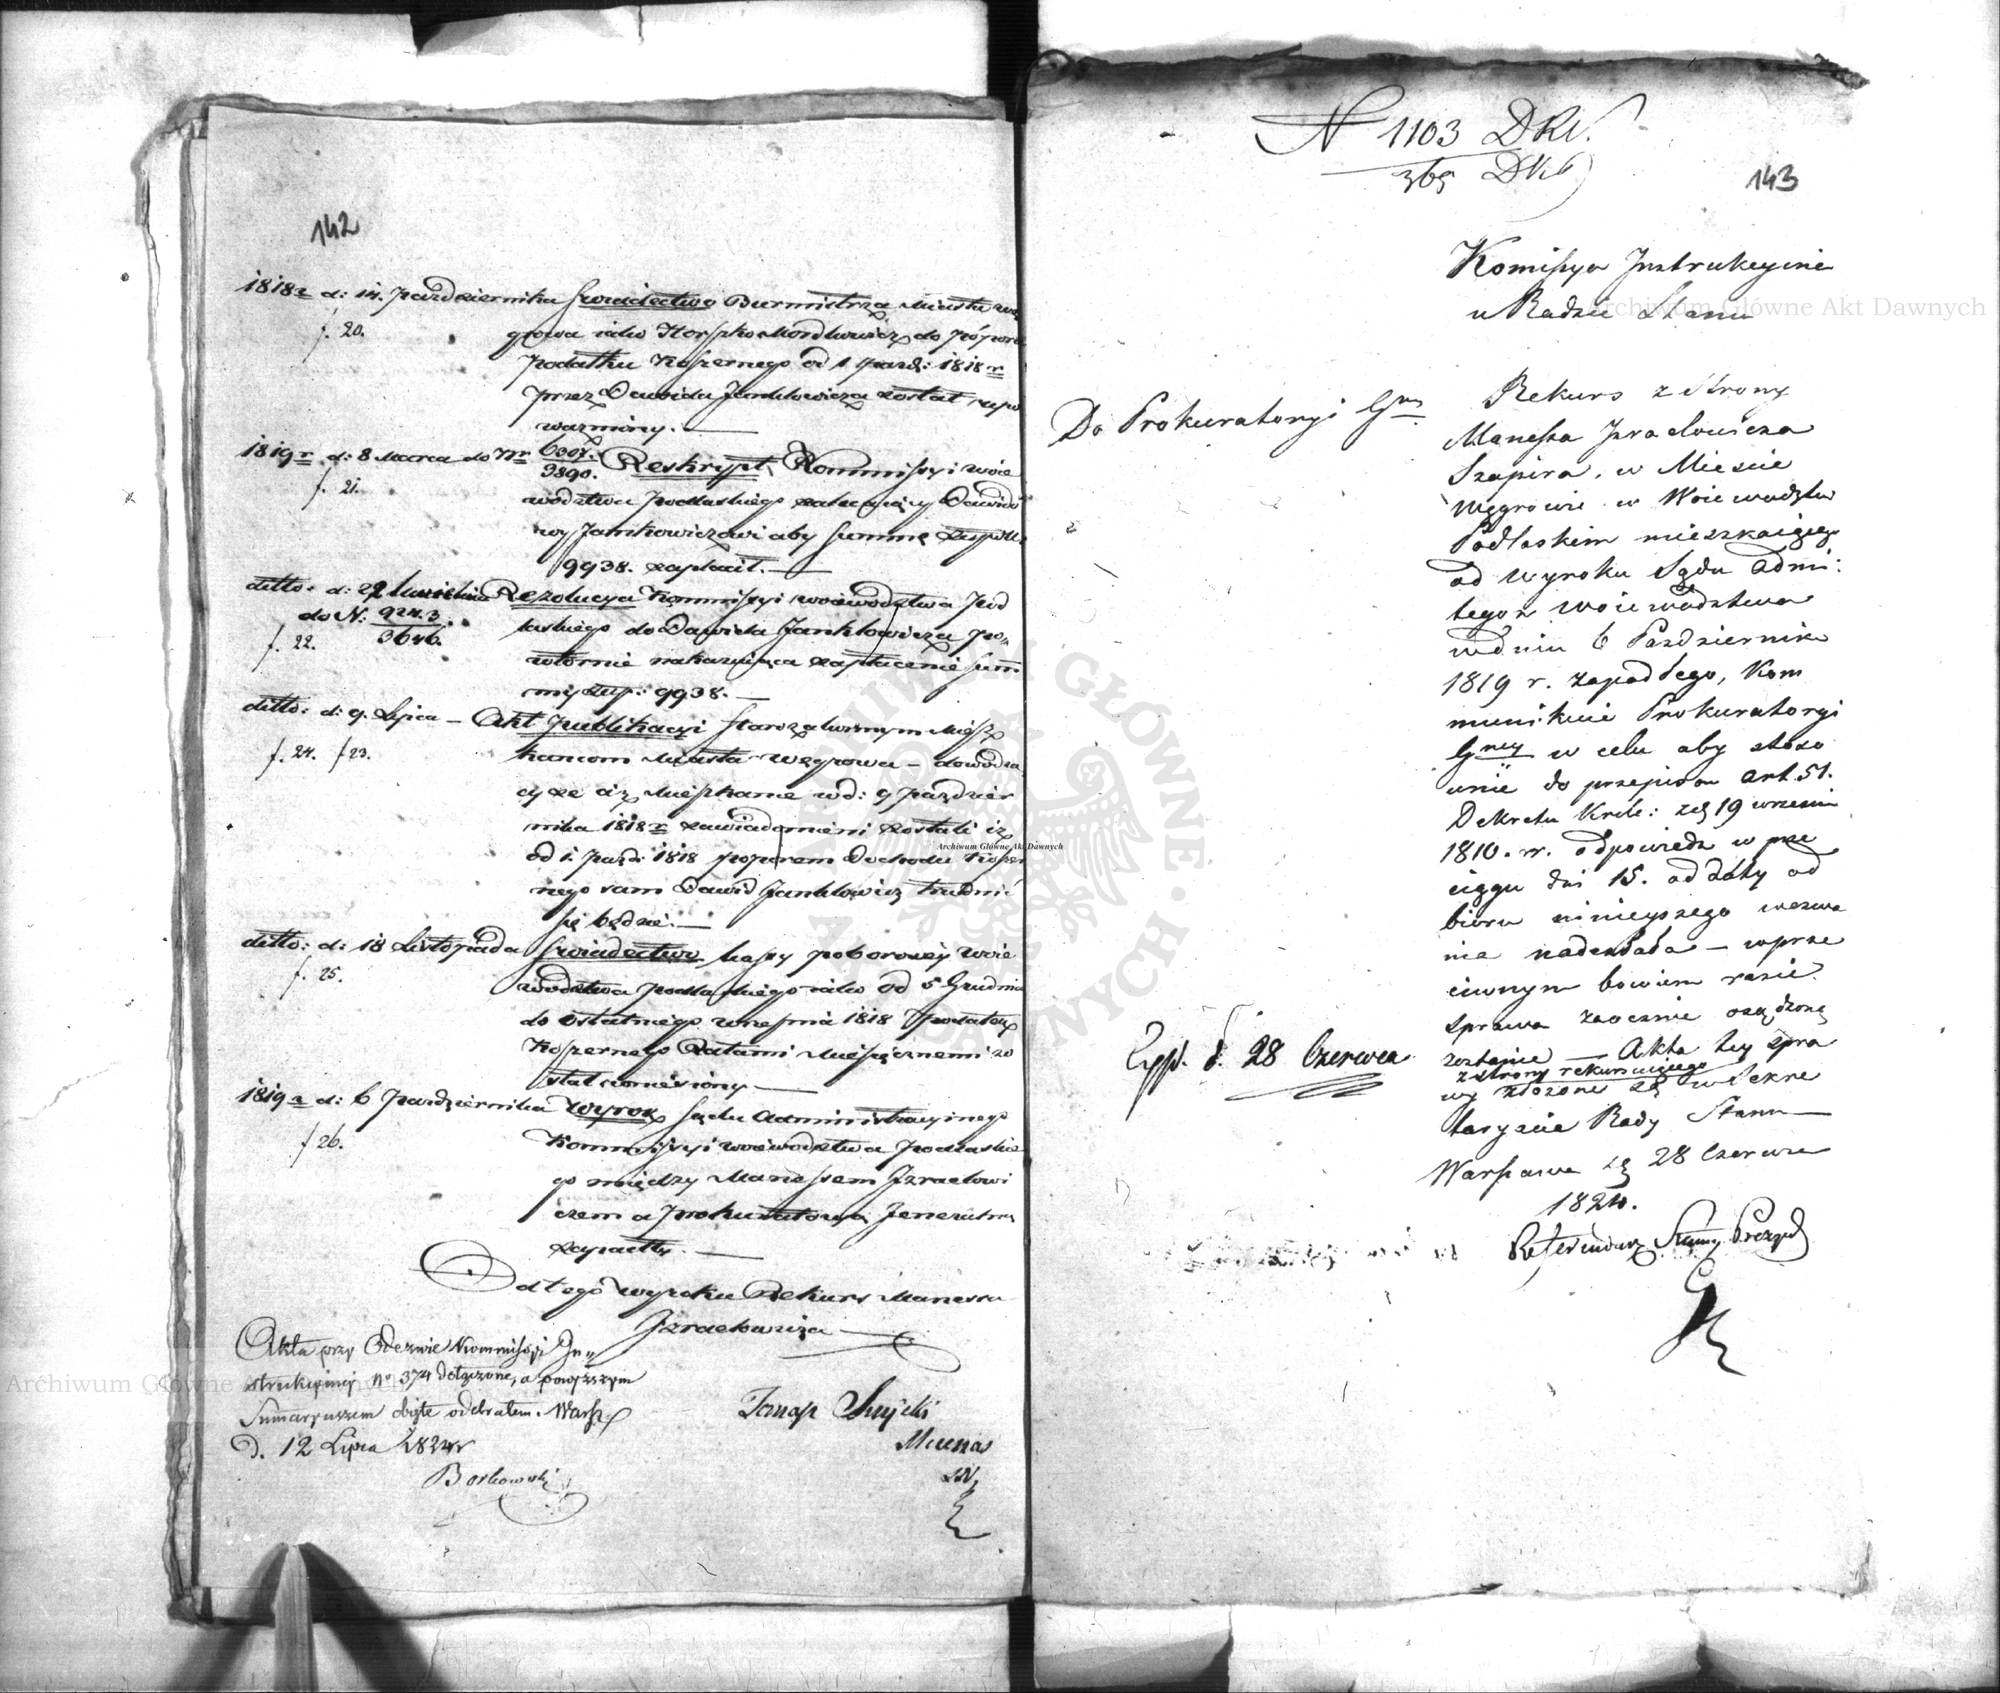 142
1818r d: 14. Października Swiadectwo Burmistrza Miasta Wę
f. 20.
growa iako Herszko Mordkowicz do poboru
podatku koszernego od 1 Pazd: 1818 r
przez Dawida Jankłowicza został upo
ważniony. —
1819 r. d: 8 Marca do Nr 6207./9890. Reskrypt Kommissyi Woie
f. 21.
wództwa Podlaskiego zalecaiący Dawido
wy Jankowiczowi aby summę Złp
9938. zapłacił. —
ditto: d: 22 Kwietnia Rezolucya Kommissyi Woiewodztwa Pod
do N: 9243/3646.
f. 22.
laskiego do Dawida Jankłowicza po„
wtornie nakazuiąca zapłacenie Sum
my Złp: 9938. —
ditto: d: 9. Lipca — Akt Publikacyi Starozakonnym Miesz
f. 24. f 23.
kancom Miasta Węgrowa — dowodzą
cy że ciż Mieszkanie w d: 9 Paździer
nika 1818 r zawiadomieni zostali iż
od 1. Pazd: 1818 poborem Dochodu Koszer
nego sam Dawid Jankłowicz trudnić
się będzie. —
ditto: d: 18 Listopada Swiadectwo kassy poborowey Woie
f. 25.
wodztwa Podlaskiego iako od 5 Grudnia
do ostatniego Września 1818 Podatek
Koszernego Ratami Miesięcznemi zo
stał wniesiony —
1819 r d: 6 Października Wyrok Sądu Administracyinego
f 26.
Kommissyi Woiewodztwa Podlaskie
go między Manessem Izraelowi
czem a Prokuratorya Jeneralną
zapadły. —
Od tego wyroku Rekurs Manessa
Izraelowicza —
Akta przy Odezwie Kommissyi In„
strukcyiney No 374 dołączone, a powyższym
Summaryuszem obięte odebrałem. Warsz
d. 12 Lipca 1824 r
Borkowski
Tomasz
143
N 1103 DKW.
365 DKG
Komissya Instrukcyina
w Radzie Stanu
Do Prokuratoryi Gney
Rekurs z strony
Manessa Izraelowicza
Szapira, w Miescie
Węgrowie w Woiewodztwie
Podlaskim mieszkaiącego
od wyroku Sądu Admi:
tegoż Woiewodztwa
w dniu 6 Pazdziernika
1819 r. zapadłego, Kom
munikuie Prokuratoryi
Gney w celu aby stoso
wnie do przepisu art. 51.
Dekretu Króle: z d 19 wrzesnia
1810. r. odpowiedz w prze
ciągu dni 15. od daty od
bioru ninieyszego wezwa
nia nadesłała — w prze
ciwnym bowiem razie
sprawa zaocznie osądzoną
zostanie — Akta tey spra
z strony rekursuiącego
wy złożone są w Sekre
taryacie Rady Stanu —
Warszawa d 28 Czerwca
1824.
Exp. d. 28 Czerwca
Referendarz Stanu Prezyd
Archiwum Główne Akt Dawnych
Archiwum Główne Akt Dawnych
Archiwum Główne Akt Dawnych
ARCHIWUM GŁÓWNE AKT DAWNYCH